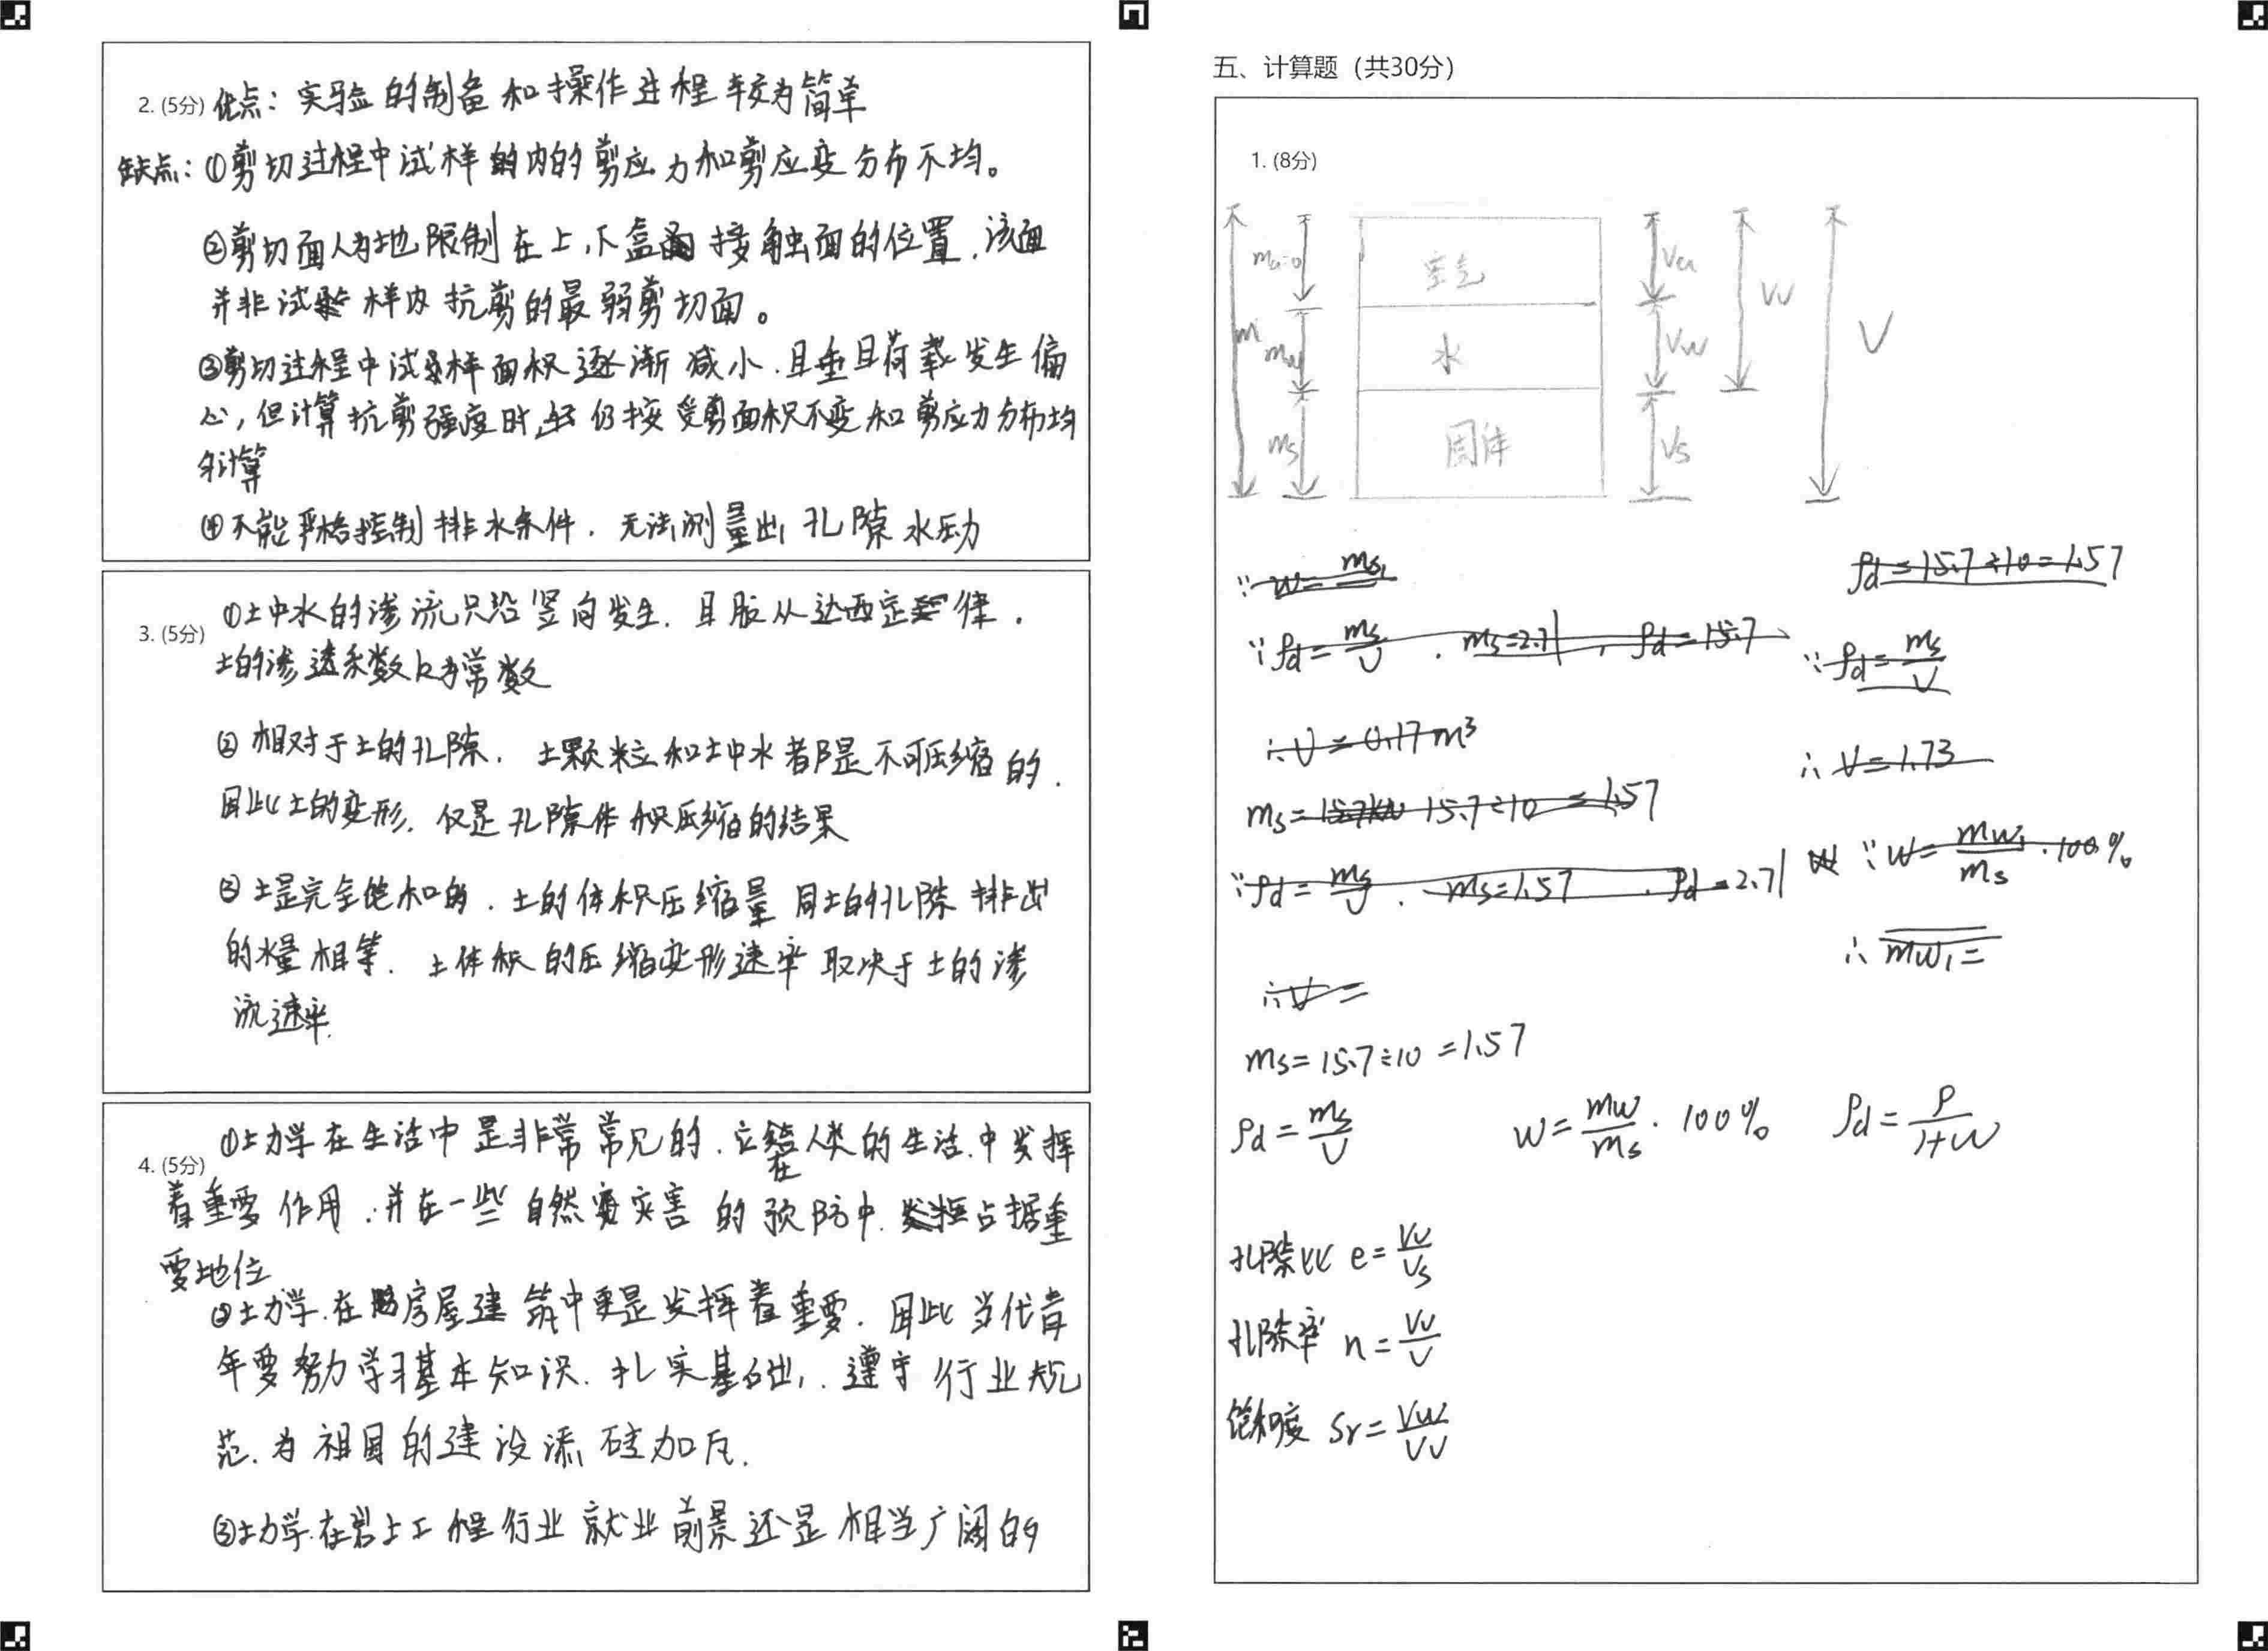 2. (5分) 优点：实验的制备和操作过程较为简单
缺点：①剪切过程中试样内的剪应力和剪应变分布不均。
②剪切面人为地限制在上，下盒接触面的位置，该面
并非试样内抗剪的最弱剪切面。
③剪切过程中试样面积逐渐减小，且垂直荷载发生偏
心，但计算抗剪强度时，仍按受剪面积不变和剪应力分布均
匀计算
④不能严格控制排水条件，无法测量出孔隙水压力
3. (5分) ①土中水的渗流只沿竖向发生，且服从达西定律，
土的渗透系数k为常数
② 相对于土的孔隙，土颗粒和土中水都是不可压缩的，
因此土的变形，仅是孔隙体积压缩的结果
③ 土是完全饱和的，土的体积压缩量同土的孔隙排出
的水量相等，土体积的压缩变形速率取决于土的渗
流速率.
4. (5分) ①土力学在生活中是非常常见的，它在人类的生活中发挥
着重要作用，并在一些自然灾害的预防中，占据重
要地位
②土力学在房屋建筑中更是发挥着重要，因此当代青
年要努力学习基本知识，扎实基础，遵守行业规
范，为祖国的建设添砖加瓦.
③土力学在岩土工程行业就业前景还是相当广阔的
五、计算题（共30分）
1. (8分)
ma=0 空气 Va
m mw 水 Vw Vv V
ms 固体 Vs
∵ρd=ms/V . ms=2.71, ρd=15.7
ρd=15.7÷10=1.57
∵ρd=ms/V
∴V=0.17m³
∴V=1.73
ms=15.7÷10=1.57
∵W=mw₁/ms·100%
∵ρd=ms/V . ms=1.57 , ρd=2.71
∴mw₁=
∴V=
ms=15.7÷10=1.57
ρd=ms/V W=mw/ms·100% ρd=ρ/1+W
孔隙比 e=Vv/Vs
孔隙率 n=Vv/V
饱和度 Sr=Vw/Vv